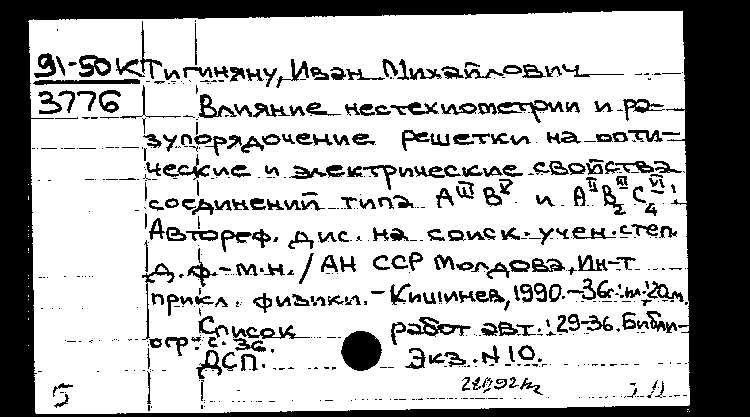 91-50К Тигиняну, Иван Михайлович
3776 Влияние нестехиометрии и ра-
зупорядочение решетки на опти-
ческие и электрические свойства
соединений типа A^III B^V и A^II B_2^III C_4^VI:
Автореф. дис. на соиск. учен. степ.
д.ф.-м.н. / АН ССР Молдова, Ин-т
прикл. физики. - Кишинев, 1990. - 36с.:
Список работ авт.: 29-36. Библи-
огр.: с. 36.
ДСП. Экз. N 10.
5